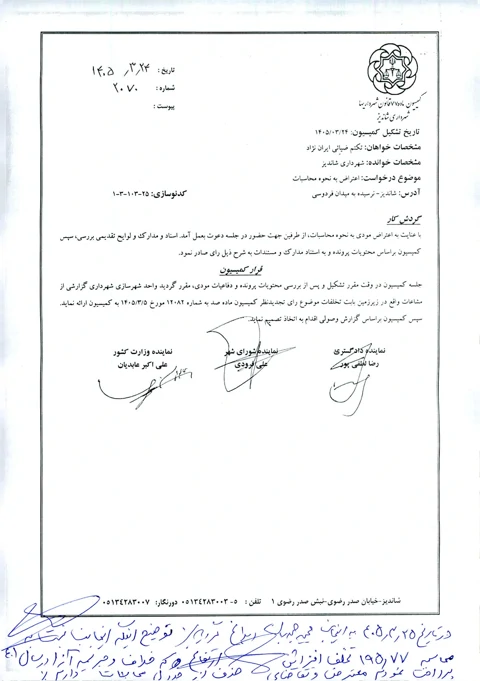 تاریخ : ۱۴۰۵/۳/۲۴
شماره : ۲۰۷۰
پیوست :
کمیسیون ماده ۷۷ قانون شهرداریها
شهرداری شاندیز
تاریخ تشکیل کمیسیون: ۱۴۰۵/۰۳/۲۴
مشخصات خواهان: تکتم ضیائی ایران نژاد
مشخصات خوانده: شهرداری شاندیز
موضوع درخواست: اعتراض به نحوه محاسبات
آدرس: شاندیز-نرسیده به میدان فردوسی
کدنوسازی: ۲۵-۱۰۳-۳-۱
گردش کار
با عنایت به اعتراض مودی به نحوه محاسبات، از طرفین جهت حضور در جلسه دعوت بعمل آمد. اسناد و مدارک و لوایح تقدیمی بررسی، سپس
کمیسیون براساس محتویات پرونده و به استناد مدارک و مستندات به شرح ذیل رای صادر نمود.
قرار کمیسیون
جلسه کمیسیون در وقت مقرر تشکیل و پس از بررسی محتویات پرونده و دفاعیات مودی، مقرر گردید واحد شهرسازی شهرداری گزارشی از
مشاعات واقع در زیرزمین بابت تخلفات موضوع رای تجدیدنظر کمیسیون ماده صد به شماره ۱۲۰۸۲ مورخ ۱۴۰۵/۳/۵ به کمیسیون ارائه نماید.
سپس کمیسیون براساس گزارش وصولی اقدام به اتخاذ تصمیم نماید.
نماینده دادگستری
رضا لطفی پور
نماینده شورای شهر
علی فرودی
نماینده وزارت کشور
علی اکبر عابدیان
شاندیز-خیابان صدر رضوی-نبش صدر رضوی ۱ تلفن : ۵-۰۵۱۳۴۲۸۳۰۰۳ دورنگار: ۰۵۱۳۴۲۸۳۰۰۷
در تاریخ ۲۵ توضیح اینکه اینجانب
محاسبه ۱۹۵/۷۷ تخلف افزایش ارتفاع
پرداخت